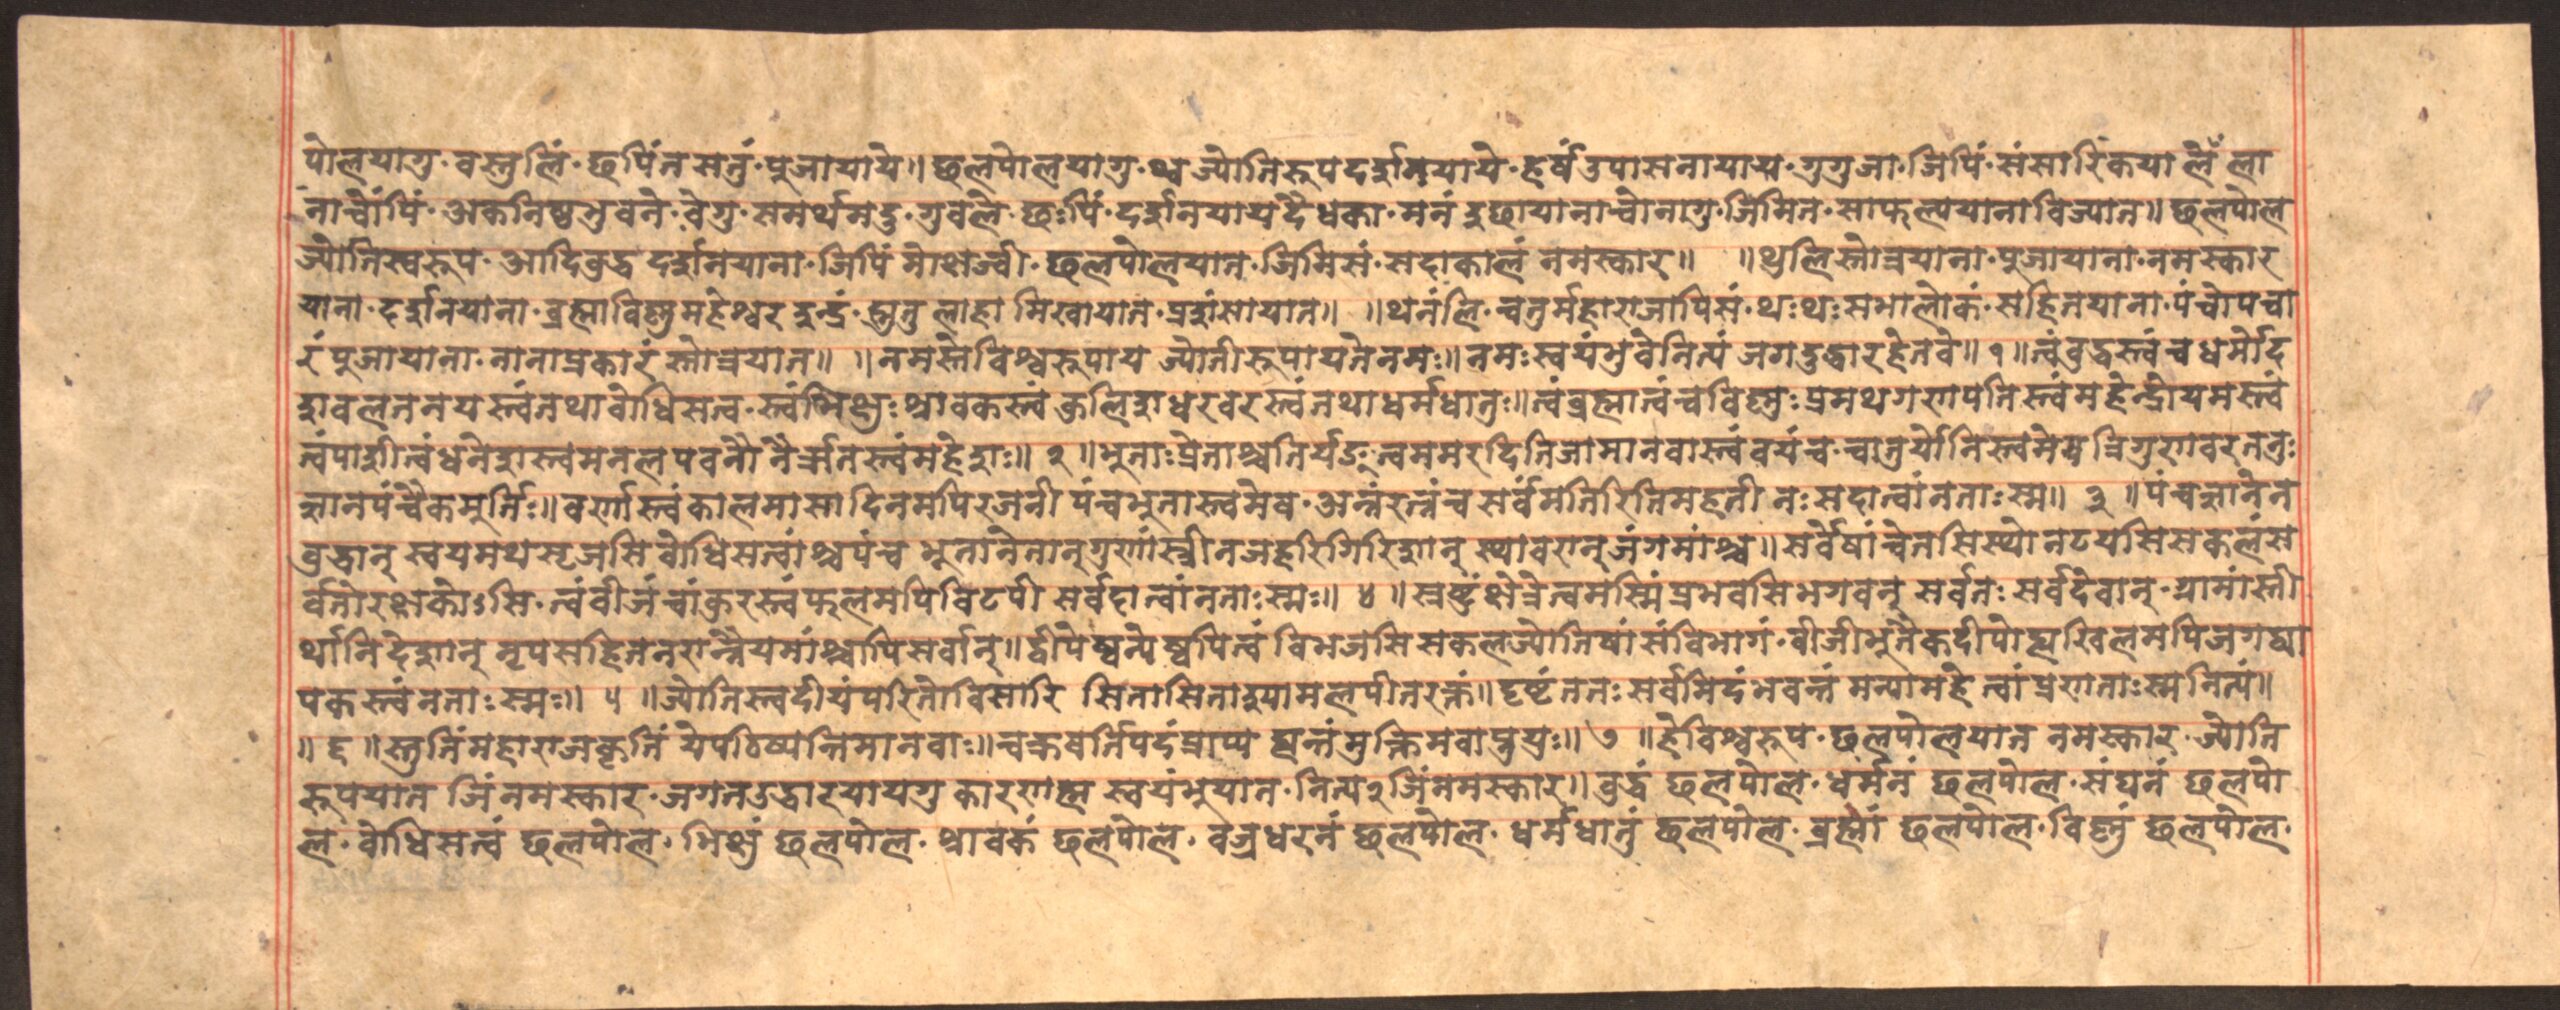 पोलयागु॰वस्तुलिं॰छपिंनसनुं॰पुजायाये॥छलपोलयागु॰थ्वज्योतिरूपदर्शनयाये॰हर्षंउपासनायाय॰गुगुजा॰जिपिं॰संसारिकयालेँला
नाचोंपिं॰अकनिष्ठभुवने॰वेगु॰समर्थमदु॰गुवलें॰छःपिं॰दर्शनयायदैधका॰मनंइछायानाचोनागु॰जिमित॰साफल्ययानाविज्यात॥छलपोल
ज्योतिस्वरूप॰आदिबुद्धदर्शनयाना॰जिपिंमोक्षज्वी॰छलपोलयात॰जिमिसं॰सदाकालंनमस्कार॥ ॥थुलिस्तोत्रयाना॰पुजायाना॰नमस्कार
याना॰दर्शनयाना॰ब्रह्माविष्णुमहेश्वरइन्द्रं॰स्तुतुलाहामिखायात॰प्रशंसायात॥ ॥थनंलि॰चतुर्महाराजापिसं॰थःथःसभालोक॰सहितयाना॰पंचोपचा
रंपुजायाना॰नानाप्रकारंस्तोत्रयात॥ ॥नमस्तेविश्वरूपायज्योतीरूपायतेनमः॥नमःस्वयंभुवेनित्यंजगदुद्धारहेतवे॥१॥त्वंबुद्धस्त्वंचधर्मोदि
शवलतनयस्त्वंतथाबोधिसत्व॰स्त्वंभिक्षुःश्रावकस्त्वंकुलिशधरवरस्त्वंतथाधर्मधातुः॥त्वंब्रह्मात्वंचविष्णुःप्रमथगणपतिस्त्वंमहेन्द्रोयमस्त्वं
त्वंपाशीत्वंधनेशस्त्वमनलपवनौनैर्ऋतस्त्वंमहेशः॥२॥भुताःप्रेताश्चतिर्यङ्त्वममरदितिजामानवास्त्वंवयंच॰चातुर्योनिस्त्वमेवत्रिगुणवरतनुः
ज्ञानपंचैकमुर्तिः॥वर्णास्त्वंकालमासादिनमपिरजनीपंचभुतास्त्वमेव॰अन्नंरत्नंचसर्वंमतिरितिमहतीनःसदात्वांनताःस्म॥३॥पंचज्ञानेन
बुद्धान्स्वयमथसृजसिबोधिसत्वांश्चपंचभूतानेतान्गुणांस्त्रीनजहरिगिरिशान्स्थावरान्जंगमांश्च॥सर्वेषांचेतसिस्थोनटयसिसकलंस
र्वतोरक्षकोऽसि॰त्वंवीजंचांकुरस्त्वंफलमपिविटपीसर्वदात्वांनताःस्मः॥४॥स्रष्टुंक्षेत्रेत्वमस्मिंप्रभवसिभगवन्सर्वतःसर्वदेवान्॰ग्रामांस्ती
र्थानिदेशान्नृपसहितनरान्नैयमांश्चापिसर्वान्॥द्वीपेष्वन्येष्वपित्वंविभजसिसकलज्योतिषांसंविभागं॰वीजीभूतैकदीपोह्यखिलमपिजगद्व्या
पकस्त्वंनताःस्मः॥५॥ज्योतिस्त्वदीयंपरितोविसारिसितासितश्यामलपीतरक्तं॥दृष्टंततःसर्वमिदंभवन्तंमन्यामहेत्वांप्रणताःस्मनित्यं॥
॥६॥स्तुतिंमहाराजकृतिंयेपठिष्यन्तिमानवाः॥चक्रवर्तिपदंप्राप्यह्यन्तंमुक्तिमवाप्नुयुः॥७॥हेविश्वरूप॰छलपोलयातनमस्कार॰ज्योति
रूपयातजिंनमस्कार॰जगतउद्धारयायगुकारणस्वयंभुयात॰नित्य२जिंनमस्कार॥बुद्धंछलपोल॰धर्मनंछलपोल॰संघनंछलपो
ल॰बोधिसत्वंछलपोल॰भिक्षुंछलपोल॰श्रावकंछलपोल॰वज्रधरनंछलपोल॰धर्मधातुंछलपोल॰ब्रह्मांछलपोल॰विष्णुंछलपोल॰